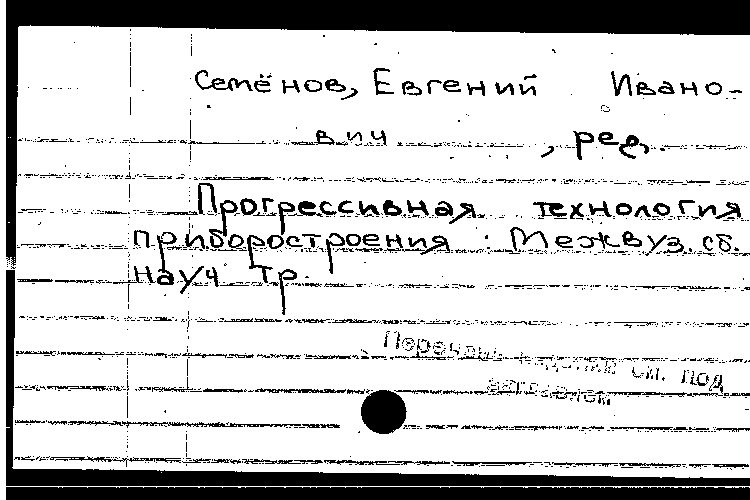 Семёнов, Евгений Ивано-
вич , ред.
Прогрессивная технология
приборостроения : Межвуз. сб.
науч тр.
Перечень изданий см. под
заглавием